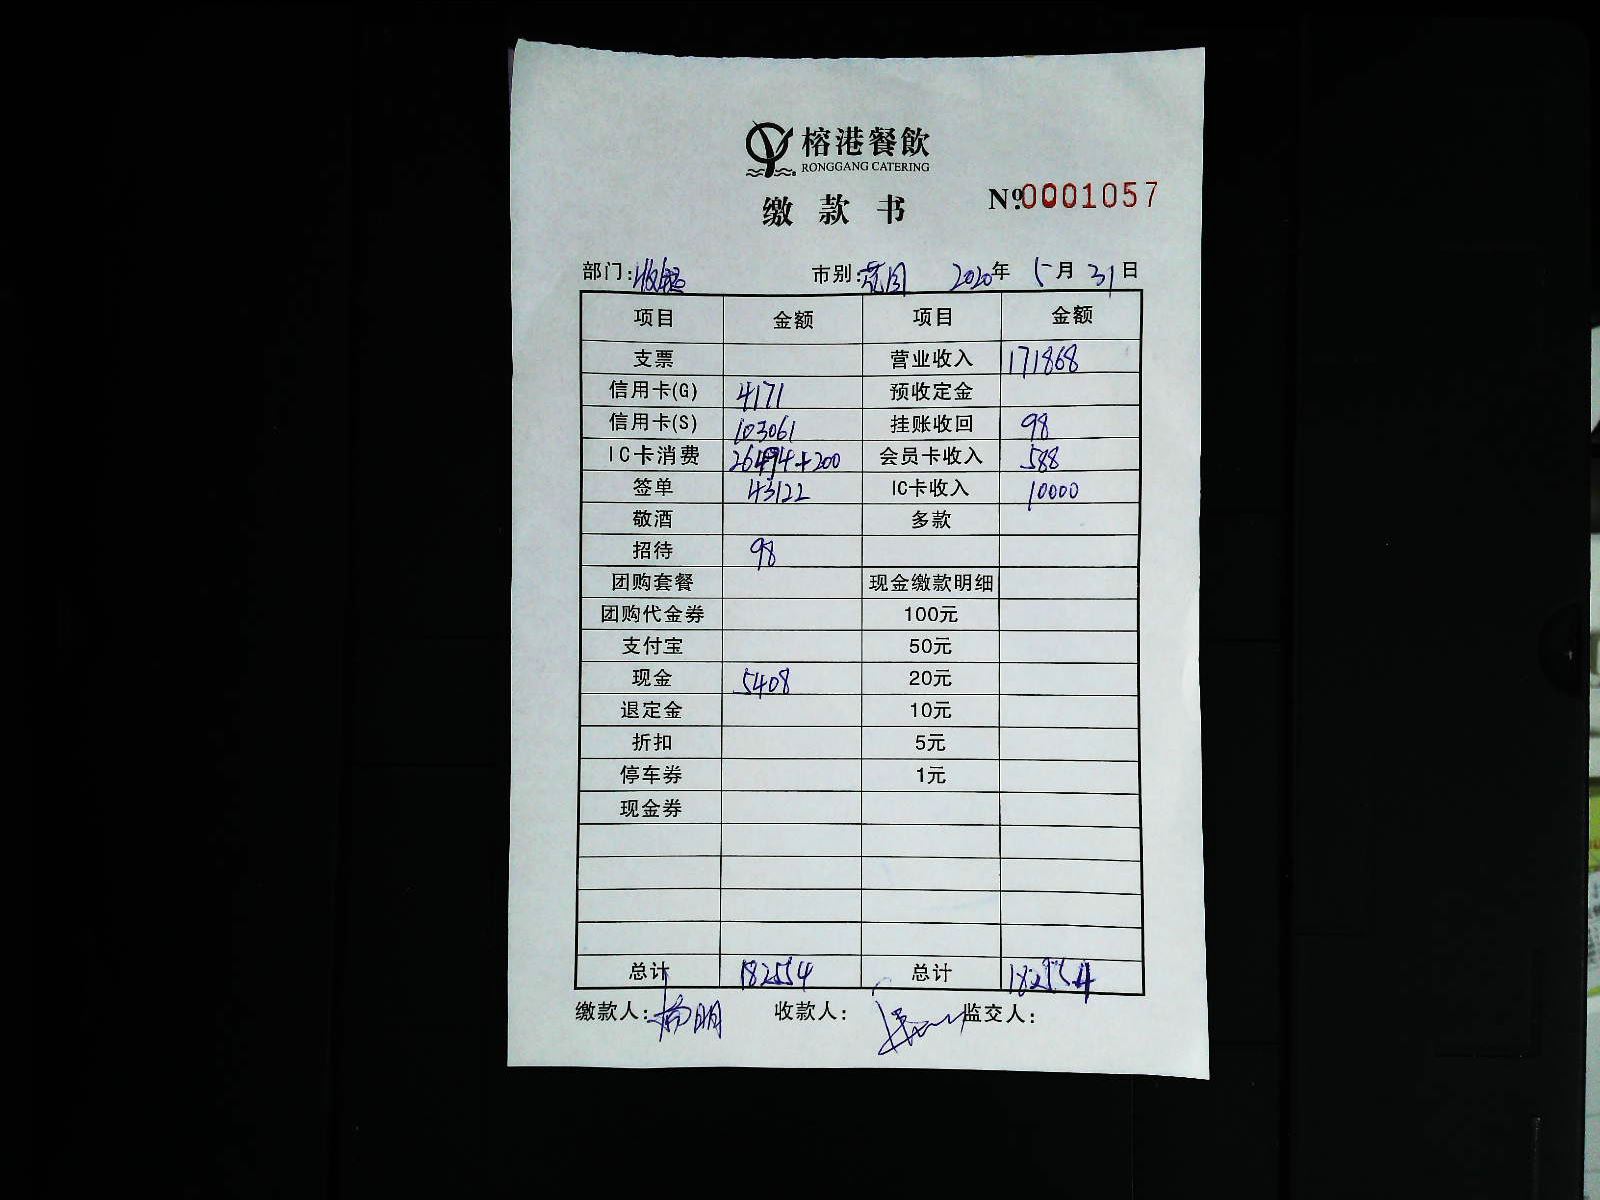 榕港餐飲
RONGGANG CATERING
缴款书
Nº 0001057
部门: 收银 市别: 2020年 5月 31日
项目 金额 项目 金额
支票 营业收入 171868
信用卡(G) 4171 预收定金
信用卡(S) 103061 挂账收回 98
IC卡消费 26494+200 会员卡收入 588
签单 43122 IC卡收入 10000
敬酒 多款
招待 98
团购套餐 现金缴款明细
团购代金券 100元
支付宝 50元
现金 5408 20元
退定金 10元
折扣 5元
停车券 1元
现金券
总计 182554 总计 182554
缴款人: 收款人: 监交人: